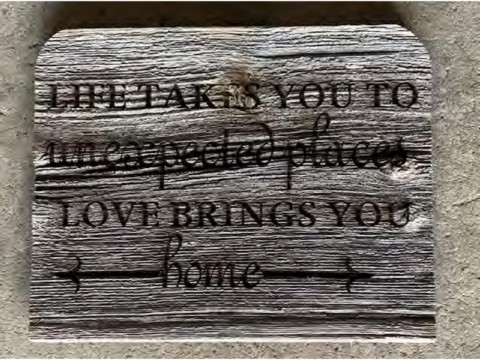 LIFE TAKES YOU TO
unexpected places
LOVE BRINGS YOU
home